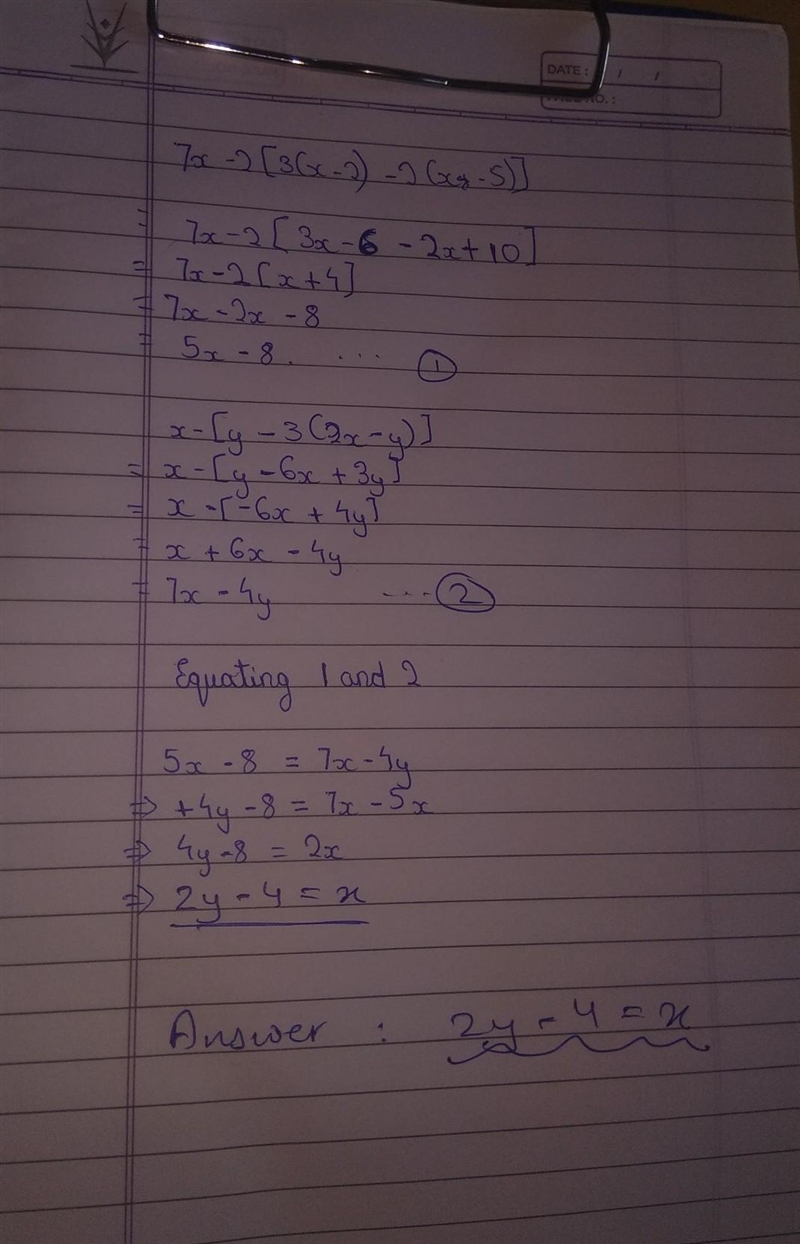 DATE : / /
PAGE NO. :
7x - 2 [3(x - 2) - 2 (x - 5)]
= 7x - 2 [ 3x - 6 - 2x + 10]
= 7x - 2 [x + 4]
= 7x - 2x - 8
= 5x - 8. ... ①
x - [y - 3 (2x - y)]
= x - [y - 6x + 3y]
= x - [-6x + 4y]
= x + 6x - 4y
= 7x - 4y ... ②
Equating 1 and 2
5x - 8 = 7x - 4y
⇒ +4y - 8 = 7x - 5x
⇒ 4y - 8 = 2x
⇒ 2y - 4 = x
Answer : 2y - 4 = x